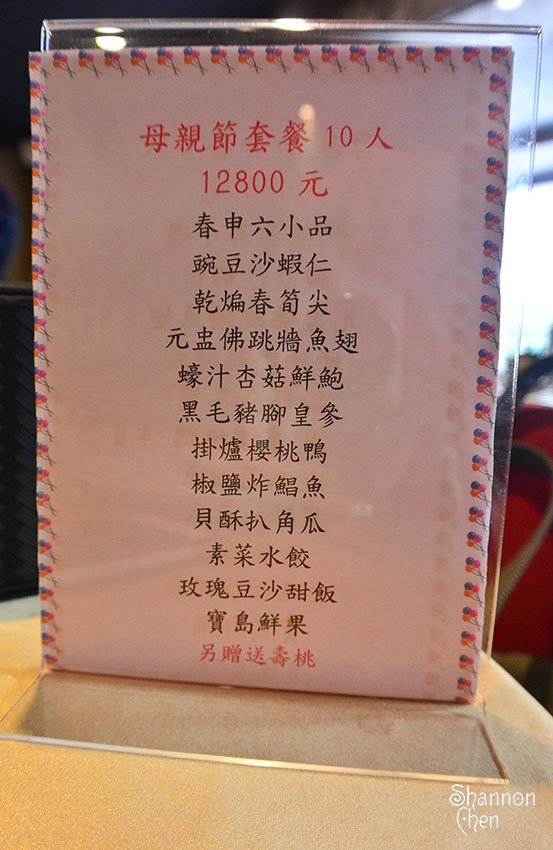 母親節套餐 10 人
12800 元
春申六小品
豌豆沙蝦仁
乾煸春筍尖
元盅佛跳牆魚翅
蠔汁杏菇鮮鮑
黑毛豬腳皇參
掛爐櫻桃鴨
椒鹽炸鯧魚
貝酥扒角瓜
素菜水餃
玫瑰豆沙甜飯
寶島鮮果
另贈送壽桃
Shannon
Chen